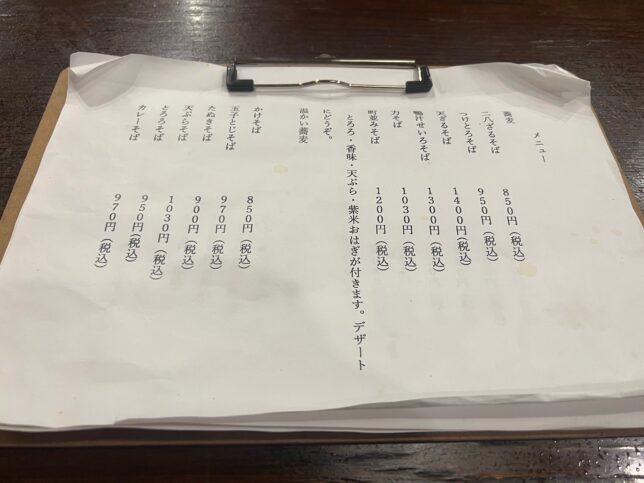 メニュー
蕎麦
二八ざるそば 850円（税込）
つけとろそば 950円（税込）
天ざるそば 1400円（税込）
鴨汁せいろそば 1300円（税込）
力そば 1030円（税込）
町並みそば 1200円（税込）
とろろ・香味・天ぷら・紫米おはぎが付きます。デザート
にどうぞ。
温かい蕎麦
かけそば 850円（税込）
玉子とじそば 970円（税込）
たぬきそば 900円（税込）
天ぷらそば 1030円（税込）
とろろそば 950円（税込）
カレーそば 970円（税込）